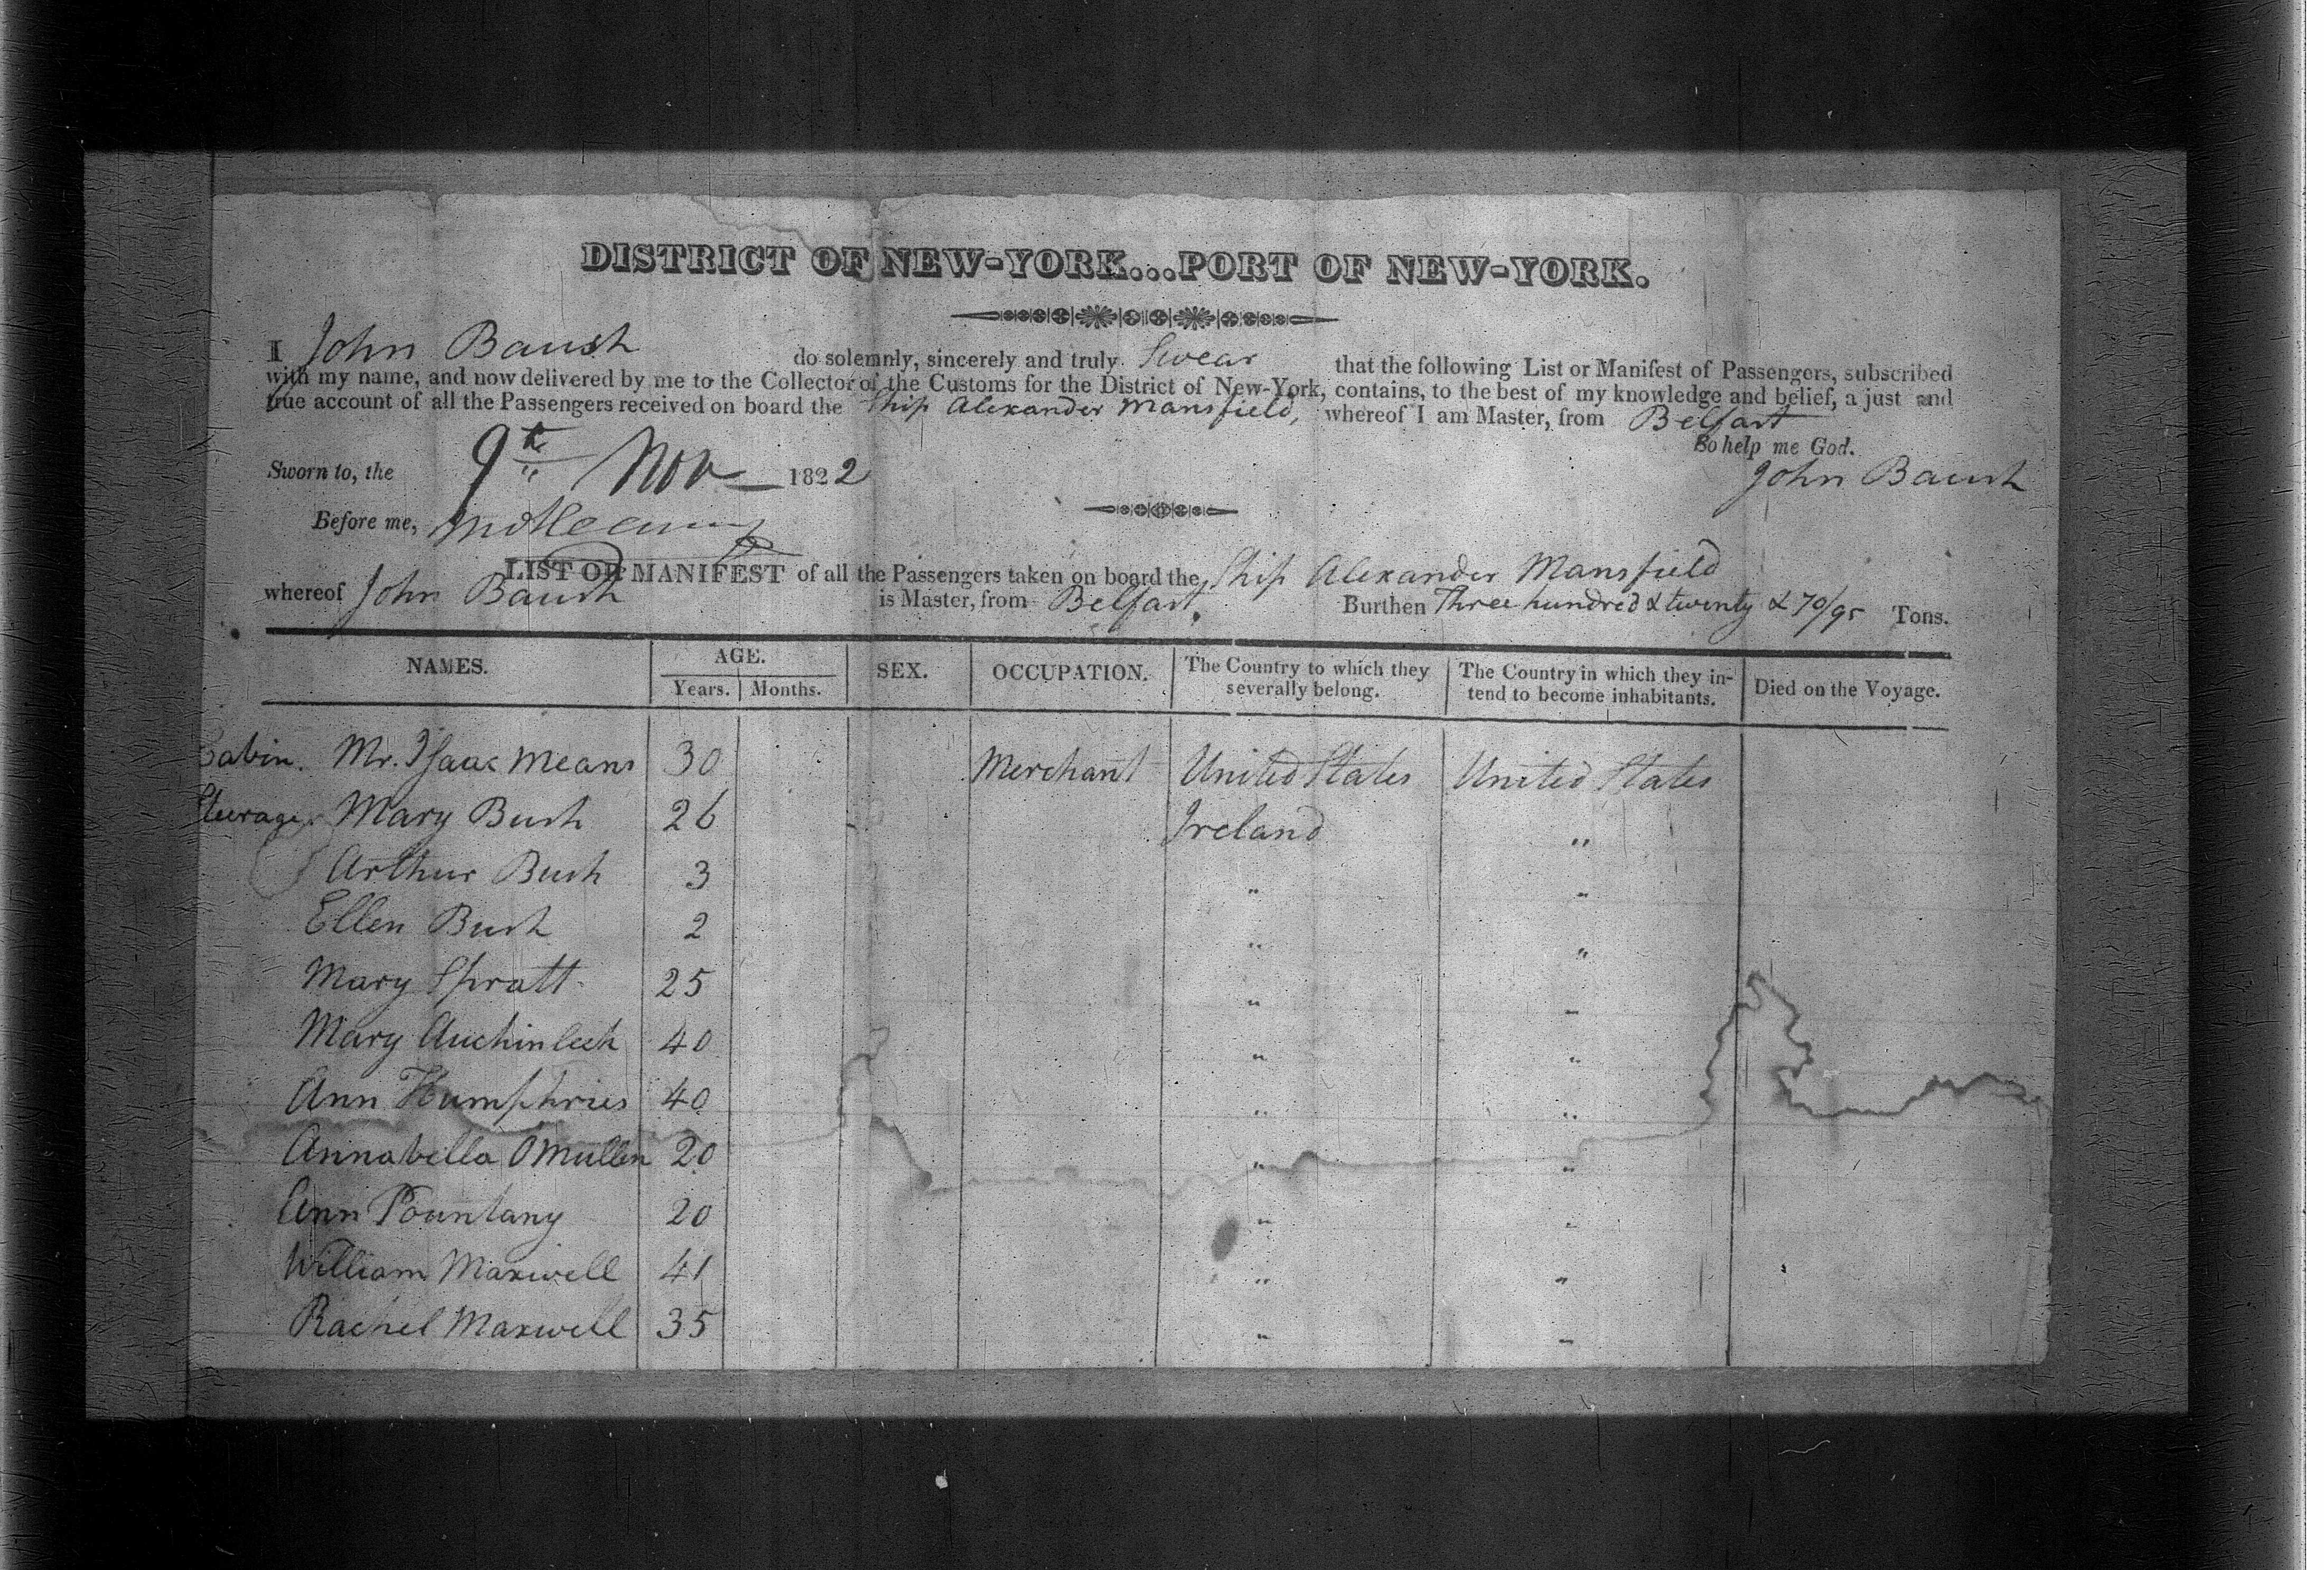 DISTRICT OF NEW-YORK...PORT OF NEW-YORK.
I John Baush do solemnly, sincerely and truly Swear that the following List or Manifest of Passengers, subscribed
with my name, and now delivered by me to the Collector of the Customs for the District of New-York, contains, to the best of my knowledge and belief, a just and
true account of all the Passengers received on board the Ship Alexander Mansfield, whereof I am Master, from Belfast
So help me God.
Sworn to, the 9th Nov 1822
John Baush
Before me,
LIST OR MANIFEST of all the Passengers taken on board the Ship Alexander Mansfield
whereof John Baush is Master, from Belfast. Burthen Three hundred & twenty & 70/95 Tons.
NAMES. AGE. SEX. OCCUPATION. The Country to which they severally belong. The Country in which they intend to become inhabitants. Died on the Voyage.
Years. Months.
Cabin. Mr. Isaac Means 30 Merchant United States United States
Steerage. Mary Bush 26 Ireland "
Arthur Bush 3 " "
Ellen Bush 2 " "
Mary Spratt 25 " "
Mary Auchinleck 40 " "
Ann Humphries 40 " "
Annabella OMullen 20 " "
Ann Pountany 20 " "
William Maxwell 41 " "
Rachel Maxwell 35 " "